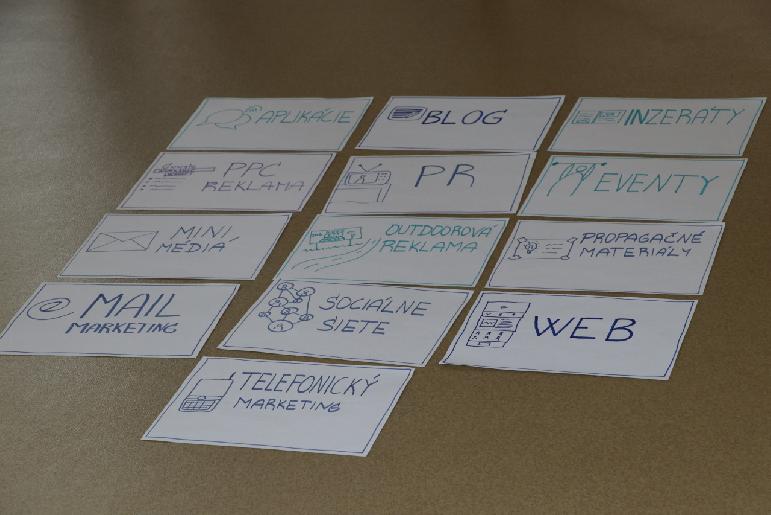 APLIKÁCIE
BLOG
INZERÁTY
PPC
REKLAMA
PR
EVENTY
MINI
MÉDIÁ
OUTDOOROVÁ
REKLAMA
PROPAGAČNÉ
MATERIÁLY
MAIL
MARKETING
SOCIÁLNE
SIETE
WEB
TELEFONICKÝ
MARKETING